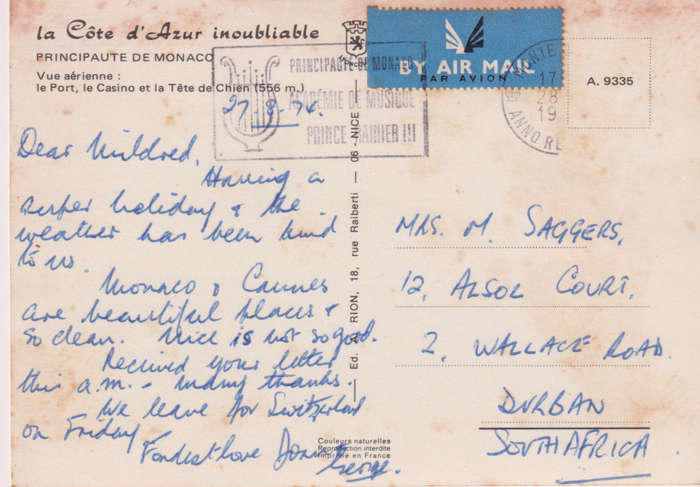 la Côte d'Azur inoubliable
PRINCIPAUTE DE MONACO
Vue aérienne :
le Port, le Casino et la Tête de Chien (556 m.)
27-8-74.
PRINCIPAUTÉ DE MONACO
ACADÉMIE DE MUSIQUE
PRINCE RAINIER III
BY AIR MAIL
PAR AVION
17
28
19
ANNO RE
A. 9335
Dear Mildred,
Having a
super holiday & the
weather has been kind
to us.
Monaco & Cannes
are beautiful places &
so clean. Nice is not so good.
Received your letter
this a.m. - many thanks.
We leave for Switzerland
on Friday
Fondest love
George.
Ed. A. RION, 18, rue Ralberti — 06 - NICE
MRS. M. SAGGERS,
12, ALSOL COURT,
2, WALLACE ROAD.
DURBAN
SOUTH AFRICA
Couleurs naturelles
Reproduction interdite
Imprimé en France